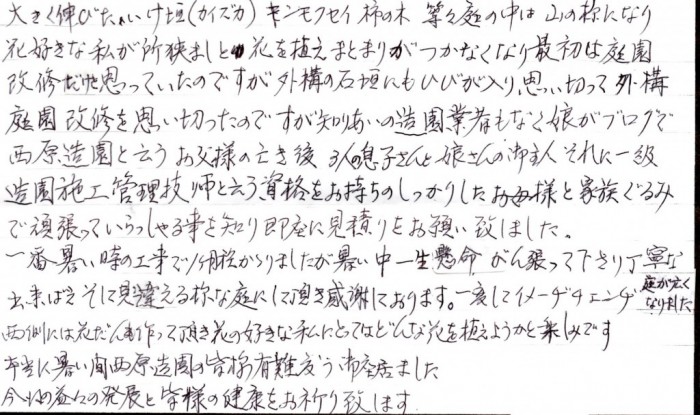 大きく伸びた いけ垣(カイズカ) キンモクセイ 柿の木 等々庭の中は山の様になり
花好きな私が所狭ましと 花を植えまとまりがつかなくなり最初は庭園
改修だけ思っていたのですが外構の石垣にもひびが入り、思い切って外構
庭園改修を思い切ったのですが知りあいの造園業者もなく娘がブログで
西原造園と云うお父様の亡き後 3人の息子さんと娘さんの御主人 それに一級
造園施工管理技師と云う資格をお持ちのしっかりしたお母様と家族ぐるみ
で頑張っていらっしゃる事を知り即座に見積りをお願い致しました。
一番暑い時の工事で1ヶ月程かかりましたが暑い中一生懸命がん張って下さり丁寧な
出来ばえそして見違える様な庭にして頂き感謝しております。一変してイメージチェンヂ 庭が広く
なりました
西側には花だんも作って頂き花の好きな私にとってはどんな花を植えようかと楽しみです
本当に暑い間西原造園の皆様有難度う御座居ました
今後の益々の発展と皆様の健康をお祈り致します